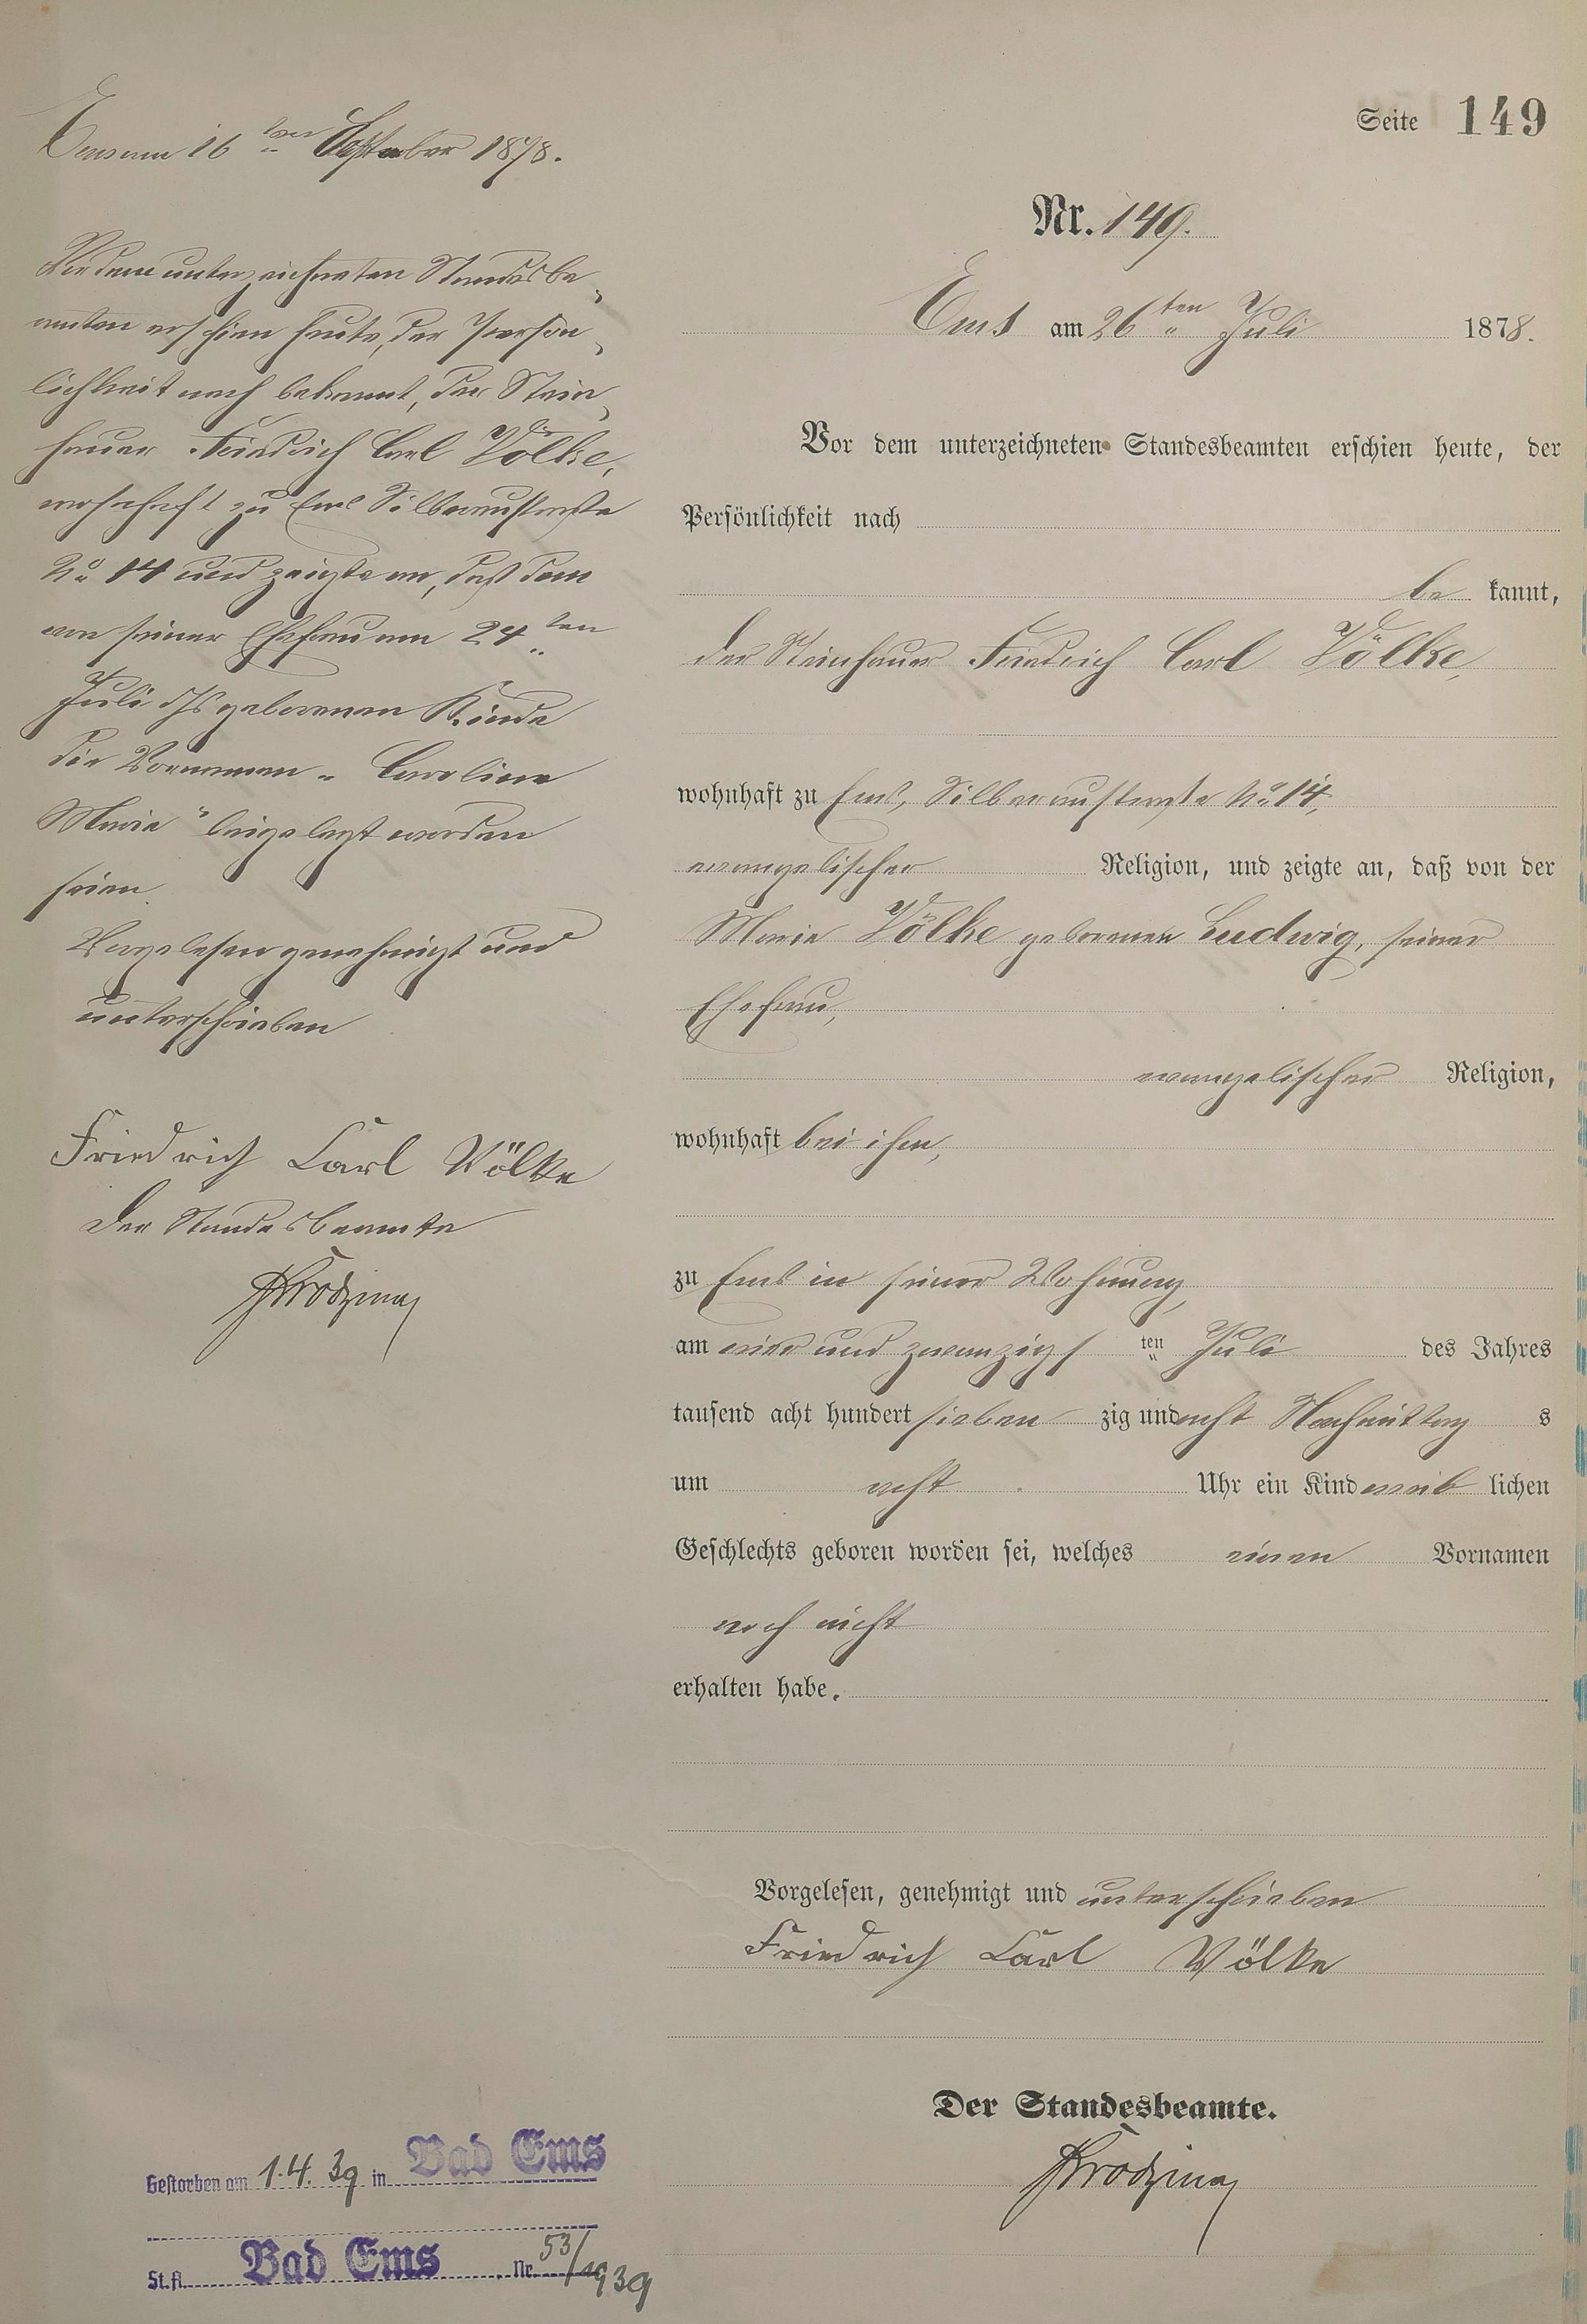 Seite 149
Nr. 149.
Ems am 26ten Juli 1878.
Vor dem unterzeichneten Standesbeamten erschien heute, der
Persönlichkeit nach
be kannt,
der Steinhauer Friedrich Carl Völke,
wohnhaft zu Ems, Silberaustraße No 14,
evangelischer Religion, und zeigte an, daß von der
Marie Völke geborenen Ludwig, seiner
Ehefrau,
evangelischer Religion,
wohnhaft bei ihm,
zu Ems in seiner Wohnung,
am vier und zwanzigs ten Juli des Jahres
tausend acht hundert sieben zig und acht Nachmittag s
um acht Uhr ein Kind weib lichen
Geschlechts geboren worden sei, welches einen Vornamen
noch nicht
erhalten habe.
Vorgelesen, genehmigt und unterschrieben
Friedrich Carl Völke
Der Standesbeamte.
Ems am 16ten September 1878.
Vor dem unterzeichneten Standesbe-
amten erschien heute, der Persön-
lichkeit nach bekannt, der Stein-
hauer Friedrich Carl Völke,
wohnhaft zu Ems Silberaustraße
No 14 und zeigte an, daß dem
von seiner Ehefrau am 24ten
Juli djs geborenen Kinde
die Vornamen „Caroline
Marie“ beigelegt worden
seien.
Vorgelesen genehmigt und
unterschrieben
Friedrich Carl Völke
Der Standesbeamte
Gestorben am 1.4.39 in Bad Ems
St.A. Bad Ems. Nr. 53/1939